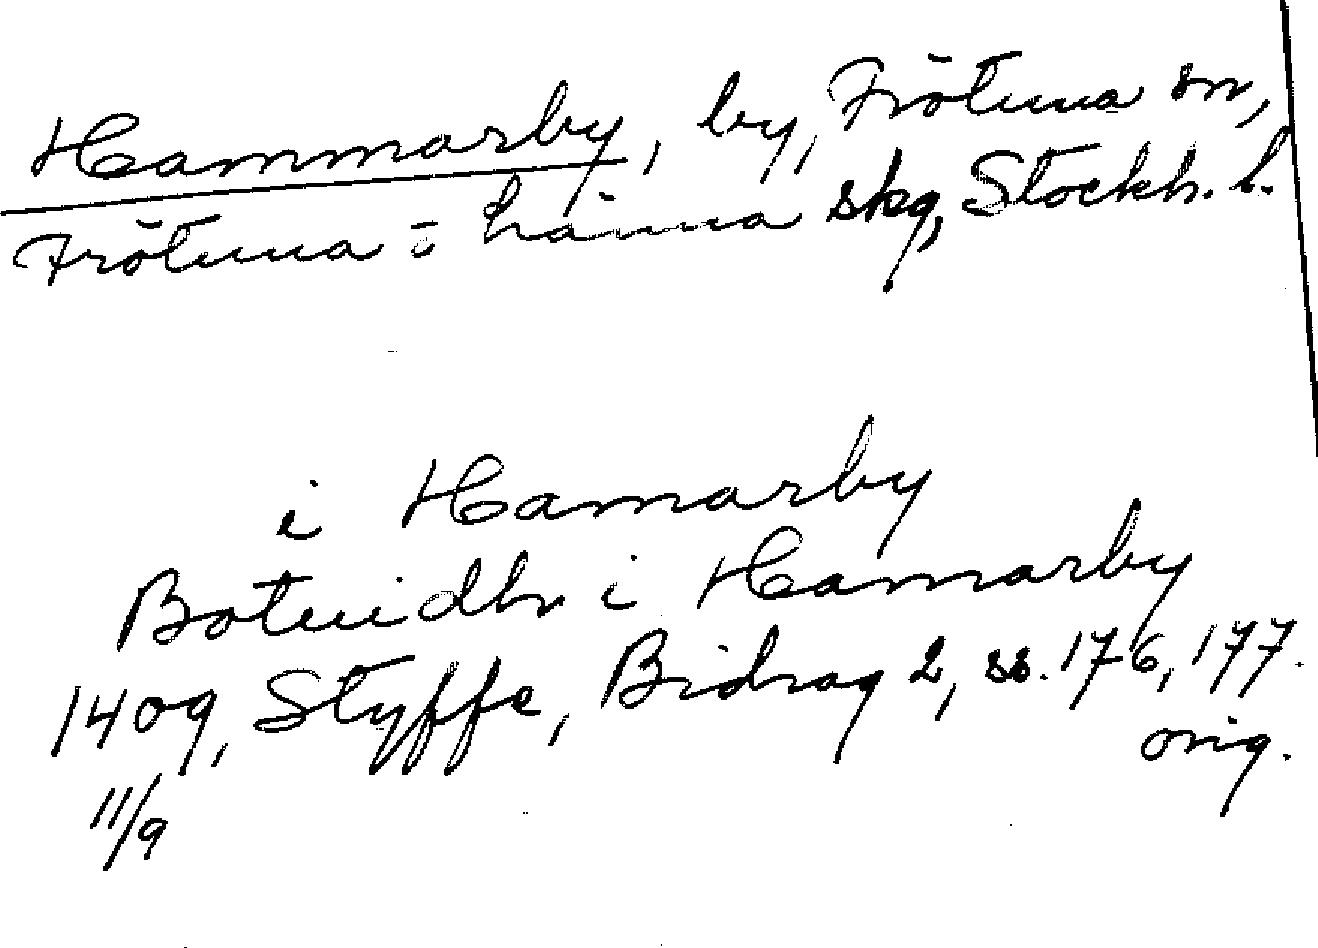 Hammarby, by, Frötuna sn,
Frötuna o Länna skg, Stockh. l.
i Hamarby
Botuidhr i Hamarby
1409, Styffe, Bidrag 2, ss. 176, 177.
orig.
11/9